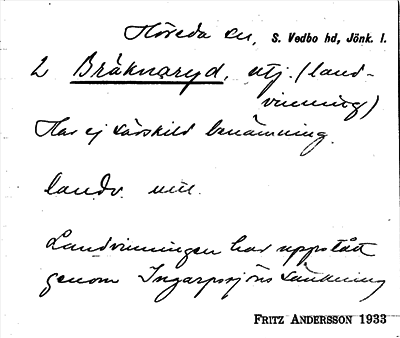 Höreda sn, S. Vedbo hd, Jönk. l.
2 Bräknaryd, utj. (land-
vinning)
Har ej särskild benämning.
landv. all.
Landvinningen har uppstått
genom Ingarpssjöns sänkning
FRITZ ANDERSSON 1933